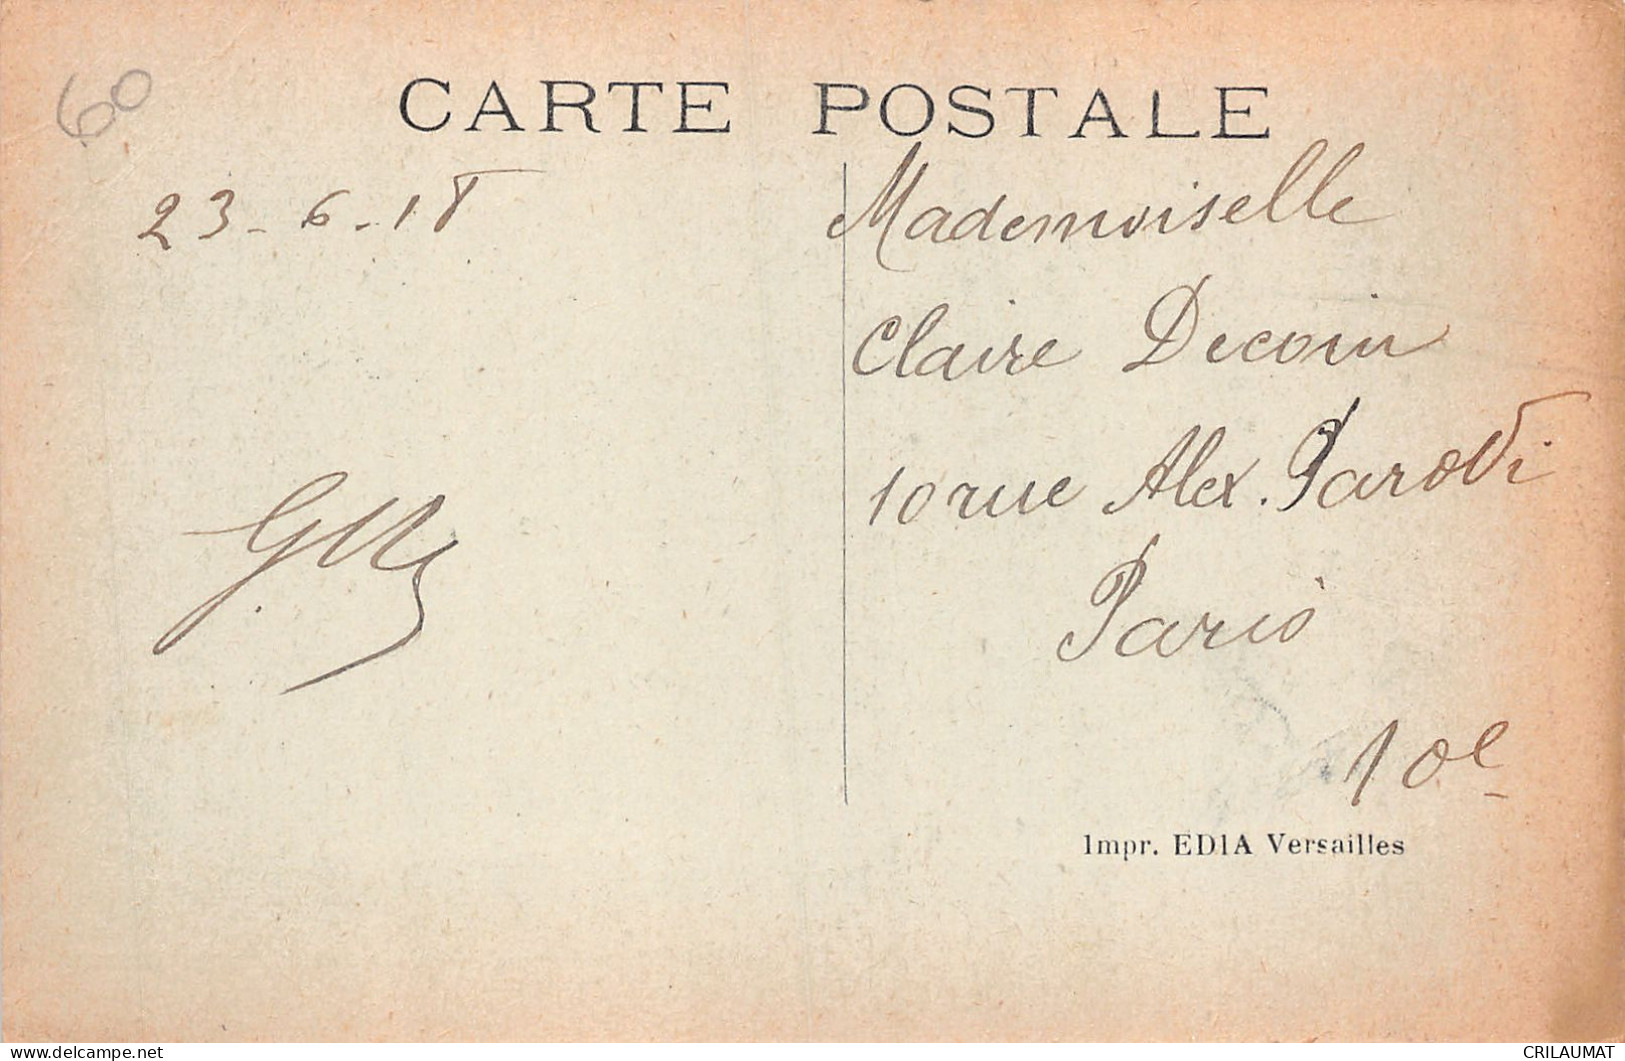 60
CARTE POSTALE
23-6-18
Mademoiselle
Claire Decoin
10 rue Alex. Parodi
Paris
10e
Impr. EDIA Versailles
www.delcampe.net
CRILAUMAT